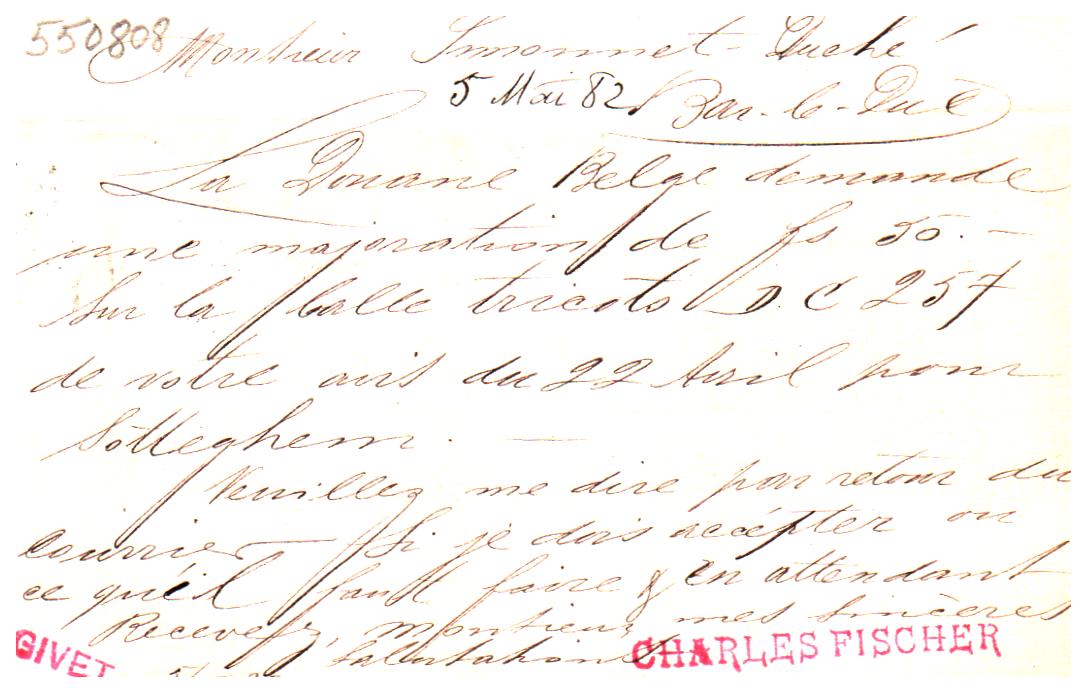 550808
Monsieur Simonnet-Duché
5 Mai 82 Bar-le-Duc
La Douane Belge demande
une majoration de fs 50.-
Sur la balle tricots D.C 257
de votre avis du 22 Avril pour
Sottleghem. —
Veuillez me dire par retour du
courrier Si je dois accépter ou
ce qu'il faut faire & en attendant
Recevez, monsieur, mes sincères
Salutations
GIVET CHARLES FISCHER